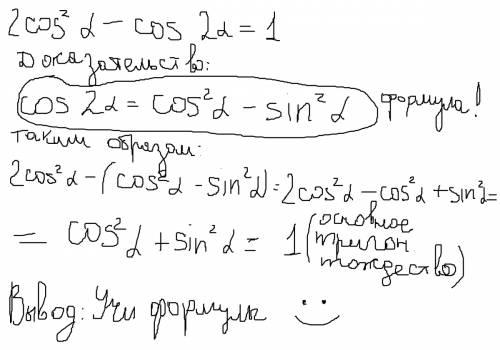 2cos² α − cos 2α = 1
Доказательство:
cos 2α = cos²α − sin²α формула!
таким образом:
2cos²α − (cos²α − sin²α) = 2cos²α − cos²α + sin²α =
= cos²α + sin²α = 1 (основное
тригон
тождество)
Вывод: Учи формулы :)